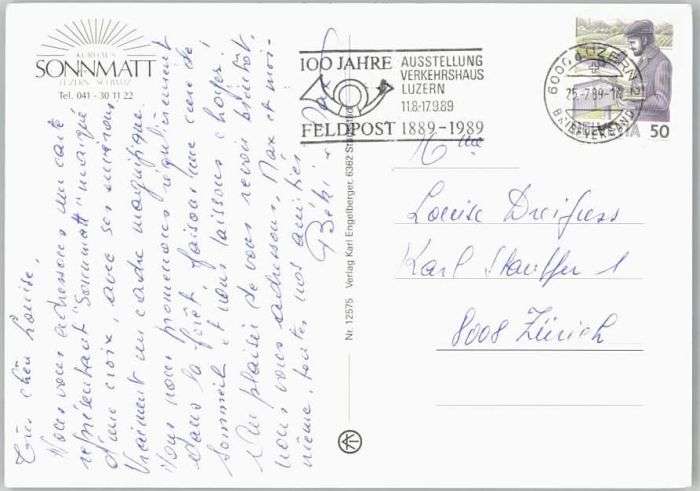 KURHAUS
SONNMATT
LUZERN SCHWEIZ
Tel. 041 - 30 11 22
Très chère Louise,
Nous vous adressons une carte
représentant "Sonnmatt" marqué
d'une croix, avec ses environs
Vraiment un cadre magnifique.
Nous nous promenons régulièrement
dans la forêt, faisons une cure de
sommeil et nous laissons choyer!
Au plaisir de vous revoir bientôt,
nous vous adressons, Max et moi-
même, toutes nos amitiés
Nr. 12575 Verlag Karl Engelberger, 6362 Stansstad
100 JAHRE
FELDPOST
AUSSTELLUNG
VERKEHRSHAUS
LUZERN
11.8-17.9.89
1889-1989
6000 LUZERN
25.-7.89-18
BRIEFVERSAND
HELVETIA 50
Mme
Louise Dreifuss
Karl Stauffer 1
8008 Zürich